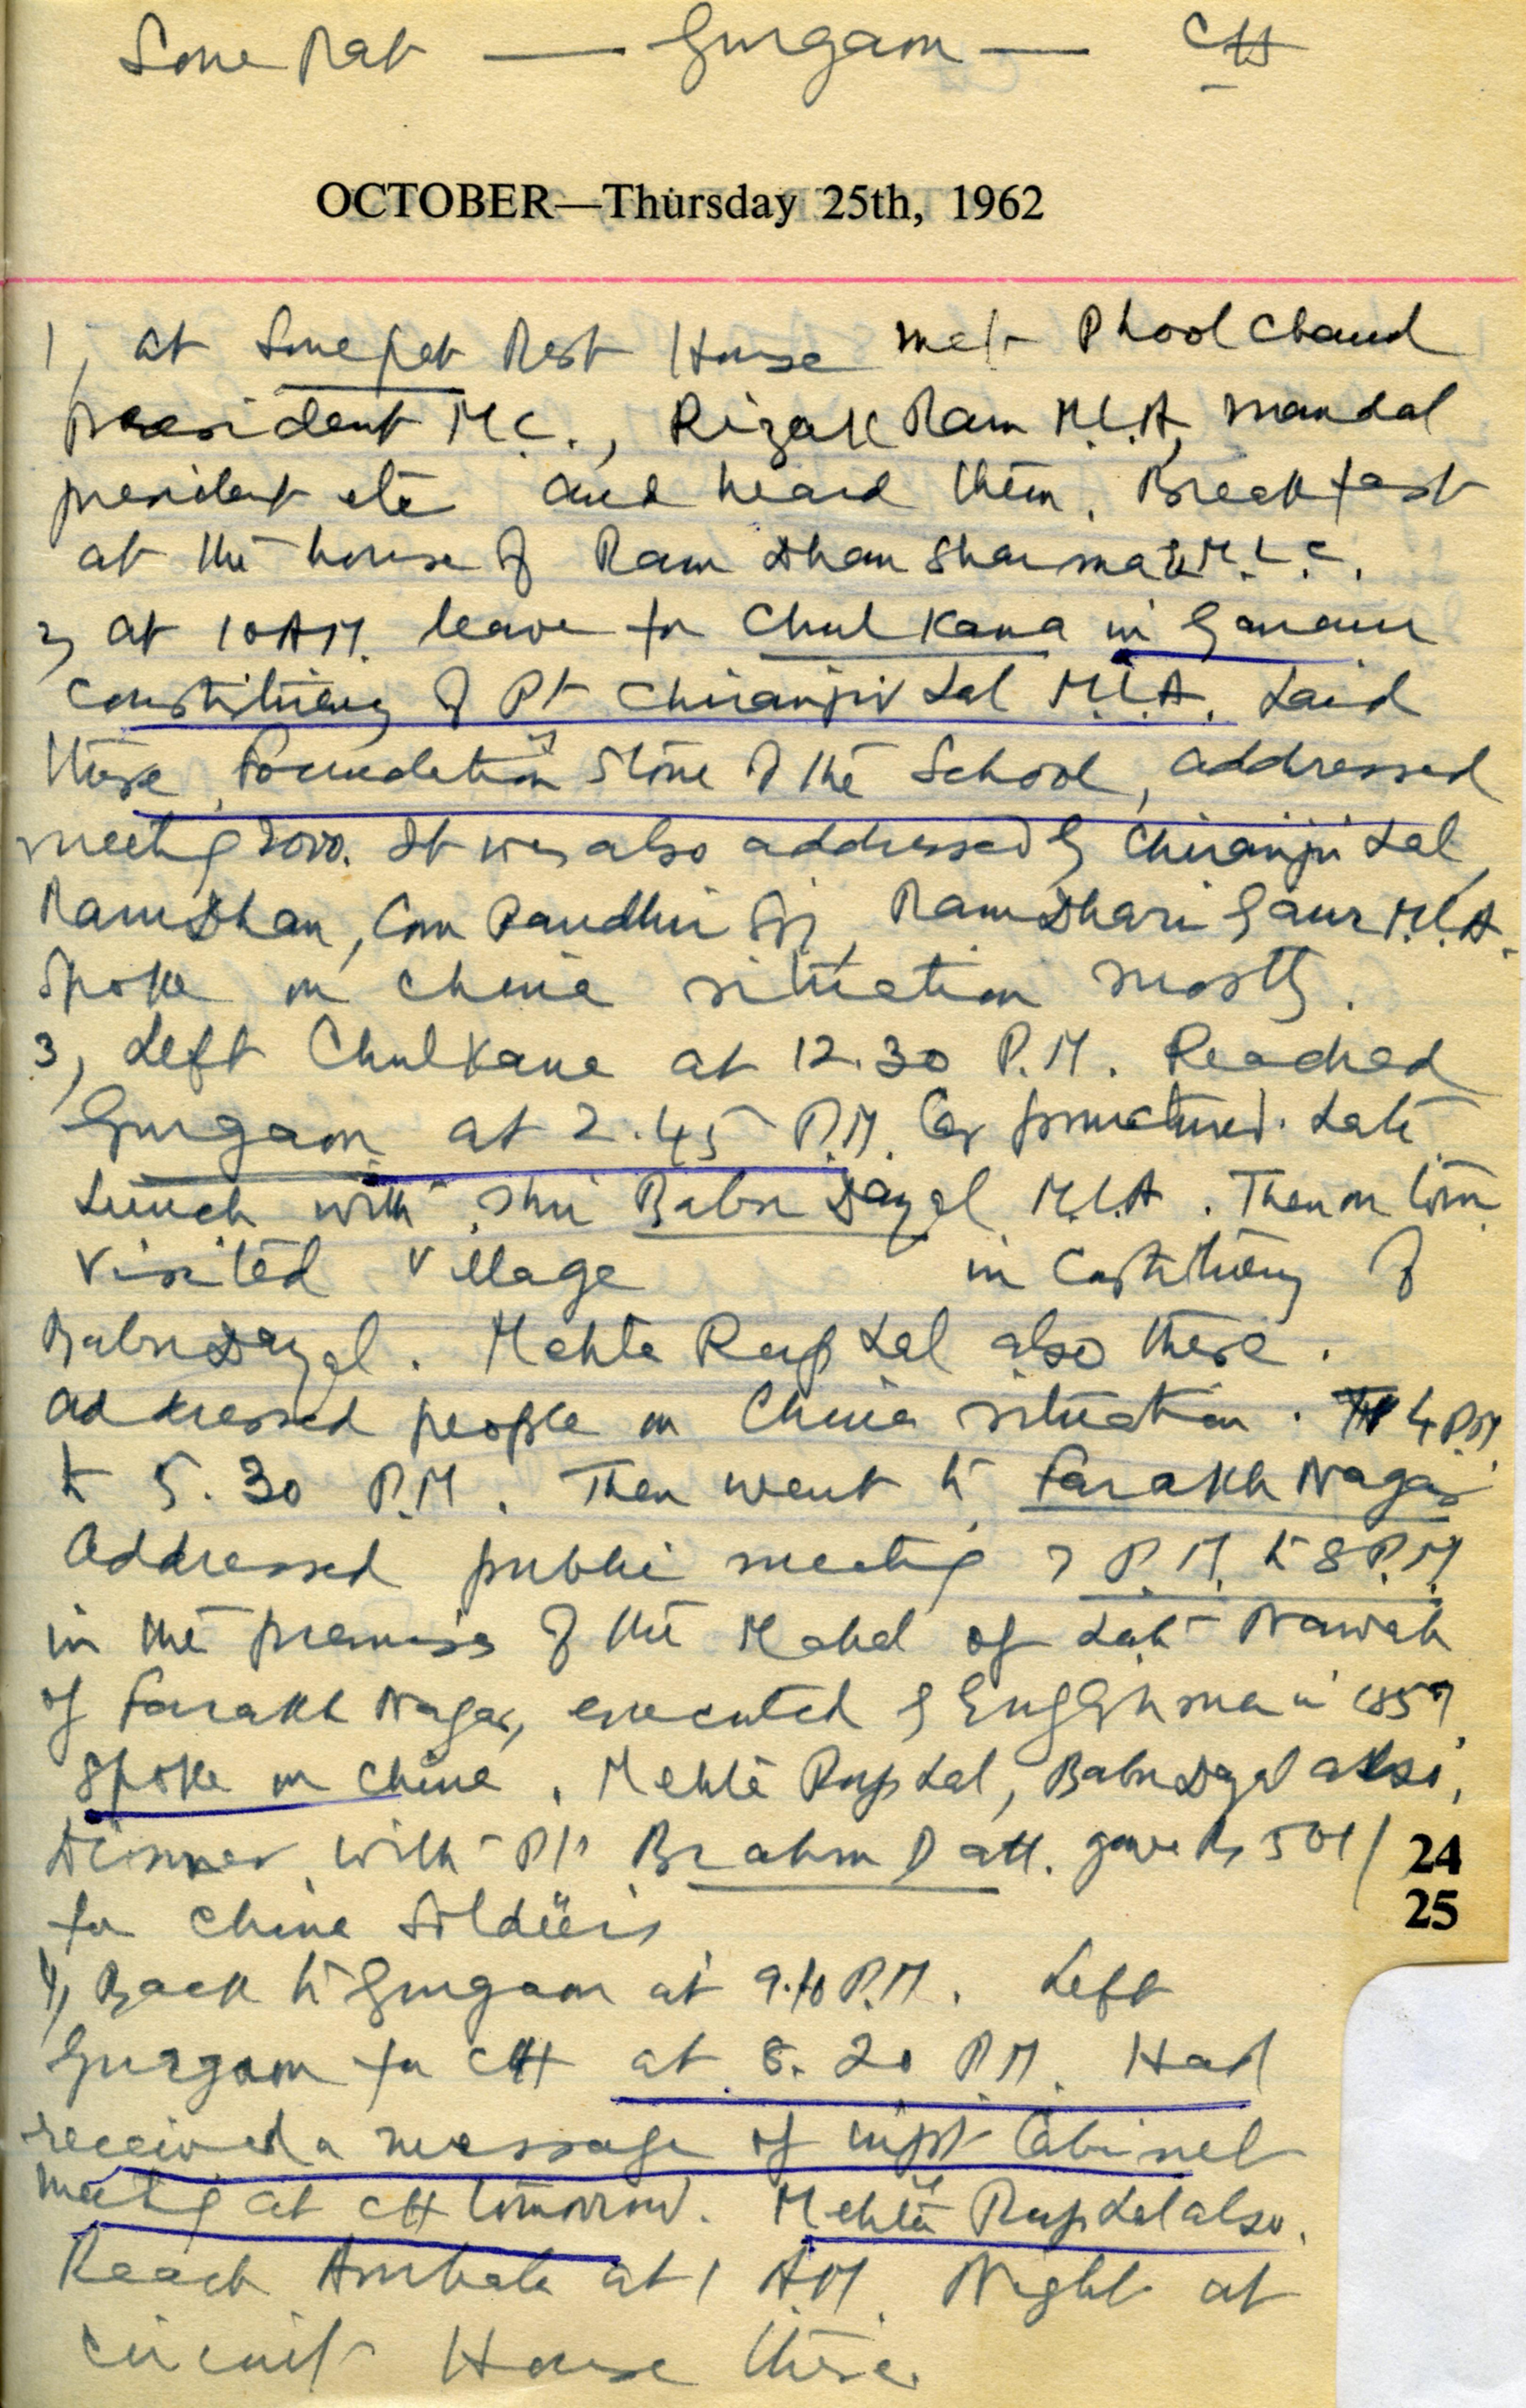 Sonepat — Gurgaon — CH
OCTOBER—Thursday 25th, 1962
1, at Sonepat Rest House met Phool Chand
president M.C., Rizak Ram M.L.A, mandal
president etc and heard them. Breakfast
at the house of Ram Dhan Sharma M.L.C.
2, at 10 AM. leave for Chulkana in Ganaur
Constituency of Pt Chiranjiv Lal M.L.A. Laid
there Foundation Stone of the School, addressed
meeting 2000. It was also addressed by Chiranji Lal,
Ram Dhan, Com Ram Dhari Gaur M.L.A.
Spoke on China situation mostly.
3, Left Chulkana at 12.30 P.M. Reached
Gurgaon at 2.45 P.M. Car punctured. Late
Lunch with Shri Babu Dayal M.L.A. Then on
visited village in Constituency of
Babu Dayal. Mehta Rup Lal also there.
addressed people on China situation. 4 P.M
to 5.30 P.M. Then went to Farakh Nagar
Addressed public meeting 7 P.M. to 8 P.M
in the premises of the Mahal of Late Nawab
of Farakh Nagar, executed by Englishman in 1857.
Spoke on China. Mehta Rup Lal, Babu Dayal also.
Dinner with Pt Brahm Datt. gave Rs 501/
24
25
for China Soldiers
4, Back to Gurgaon at P.M. Left
Gurgaon for CH at 8.20 P.M. Had
received a message of Cabinet
meeting at CH tomorrow. Mehta Rup Lal also.
Reach Ambala at 1 AM. Night at
circuit House there.